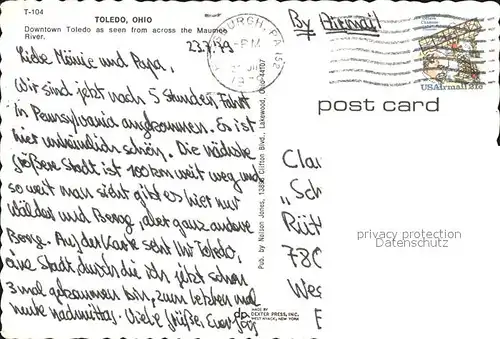 T-104
TOLEDO, OHIO
Downtown Toledo as seen from across the Maumee
River.
23.7.79
Liebe Mömie und Papa,
Wir sind jetzt nach 5 Stunden Fahrt
in Pennsylvania angekommen. Es ist
hier unheimlich schön. Die nächste
größere Stadt ist 100 km weit weg und
so weit man sieht gibt es hier nur
Wälder und Berge, aber ganz andere
Berge. Auf der Karte seht Ihr Toledo,
eine Stadt, durch die ich jetzt schon
3 mal gekommen bin, zum letzten mal
heute nachmittag. Viele Grüße, Euer
Pub. by Nelson Jones, 13895 Clifton Blvd., Lakewood, Ohio 44107
MADE BY
dp DEXTER PRESS, INC.
WEST NYACK, NEW YORK
BURGH, PA 152
PM
By Airmail
USAirmail 21c
post card
Clau
„Sch
Rütt
780
Wes
privacy protection
Datenschutz